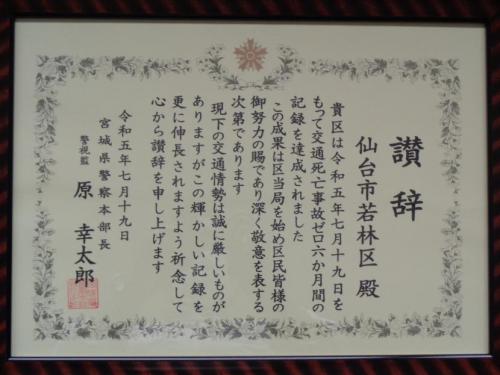 讃辞
仙台市若林区殿
貴区は令和五年七月十九日を
もって交通死亡事故ゼロ六か月間の
記録を達成されました
この成果は区当局を始め区民皆様の
御努力の賜であり深く敬意を表する
次第であります
現下の交通情勢は誠に厳しいものが
ありますがこの輝かしい記録を
更に伸長されますよう祈念して
心から讃辞を申し上げます
令和五年七月十九日
宮城県警察本部長
警視監 原幸太郎